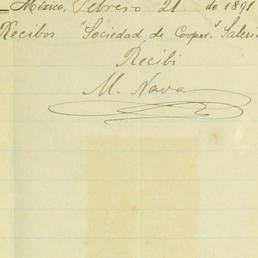 México, Febrero 21 de 1891
Recibos "Sociedad de Cooper.
Recibi
M. Nava